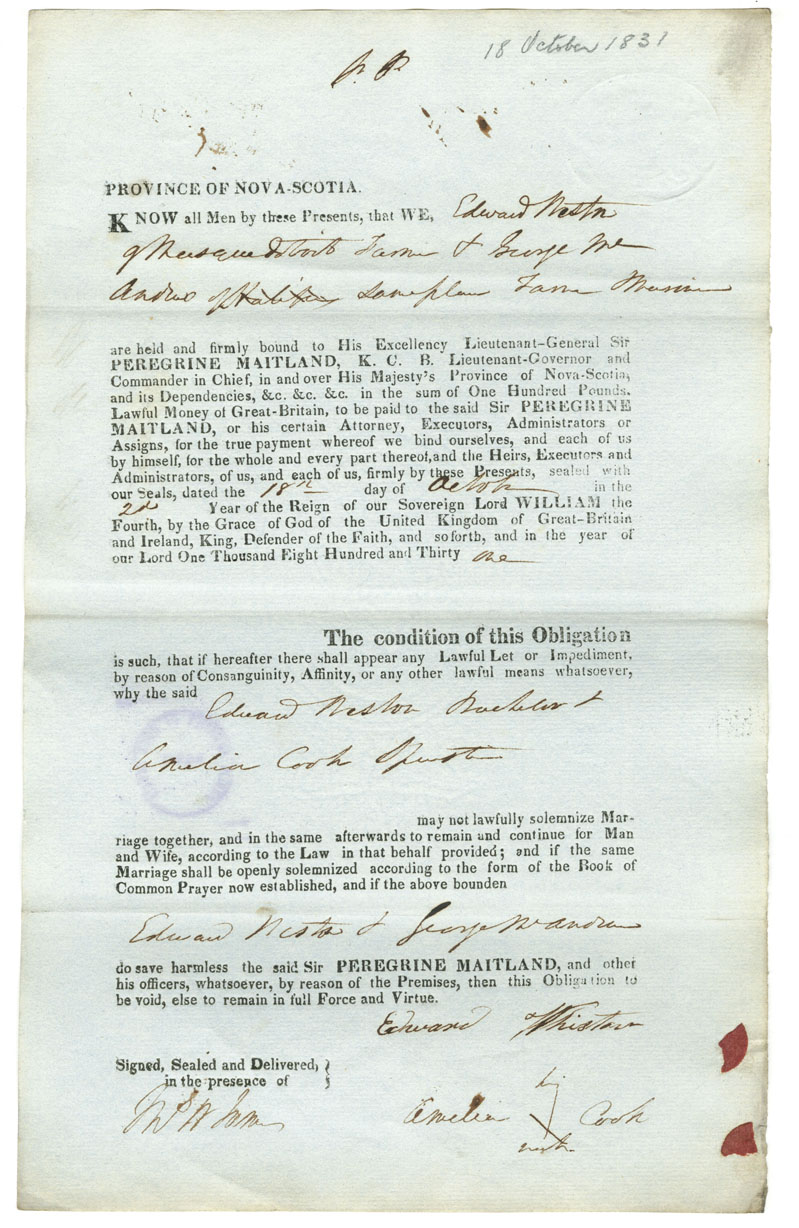 18 October 1831
PROVINCE OF NOVA-SCOTIA.
KNOW all Men by these Presents, that WE, Edward Weston
of Musquodoboit Farmer & George Mc
Andrew of Halifax same place Farmer
are held and firmly bound to His Excellency Lieutenant-General Sir
PEREGRINE MAITLAND, K. C. B. Lieutenant-Governor and
Commander in Chief, in and over His Majesty's Province of Nova-Scotia,
and its Dependencies, &c. &c. &c. in the sum of One Hundred Pounds.
Lawful Money of Great-Britain, to be paid to the said Sir PEREGRINE
MAITLAND, or his certain Attorney, Executors, Administrators or
Assigns, for the true payment whereof we bind ourselves, and each of us
by himself, for the whole and every part thereof, and the Heirs, Executors and
Administrators, of us, and each of us, firmly by these Presents, sealed with
our Seals, dated the 18th day of Octob in the
2d Year of the Reign of our Sovereign Lord WILLIAM the
Fourth, by the Grace of God of the United Kingdom of Great-Britain
and Ireland, King, Defender of the Faith, and so forth, and in the year of
our Lord One Thousand Eight Hundred and Thirty one
The condition of this Obligation
is such, that if hereafter there shall appear any Lawful Let or Impediment,
by reason of Consanguinity, Affinity, or any other lawful means whatsoever,
why the said
Edward Weston Bachelor &
Amelia Cook Spinster
may not lawfully solemnize Mar-
riage together, and in the same afterwards to remain and continue for Man
and Wife, according to the Law in that behalf provided; and if the same
Marriage shall be openly solemnized according to the form of the Book of
Common Prayer now established, and if the above bounden
Edward Weston & George McAndrew
do save harmless the said Sir PEREGRINE MAITLAND, and other
his officers, whatsoever, by reason of the Premises, then this Obligation to
be void, else to remain in full Force and Virtue.
Edward Whiston
Signed, Sealed and Delivered,
in the presence of
her
Amelia Cook
mark